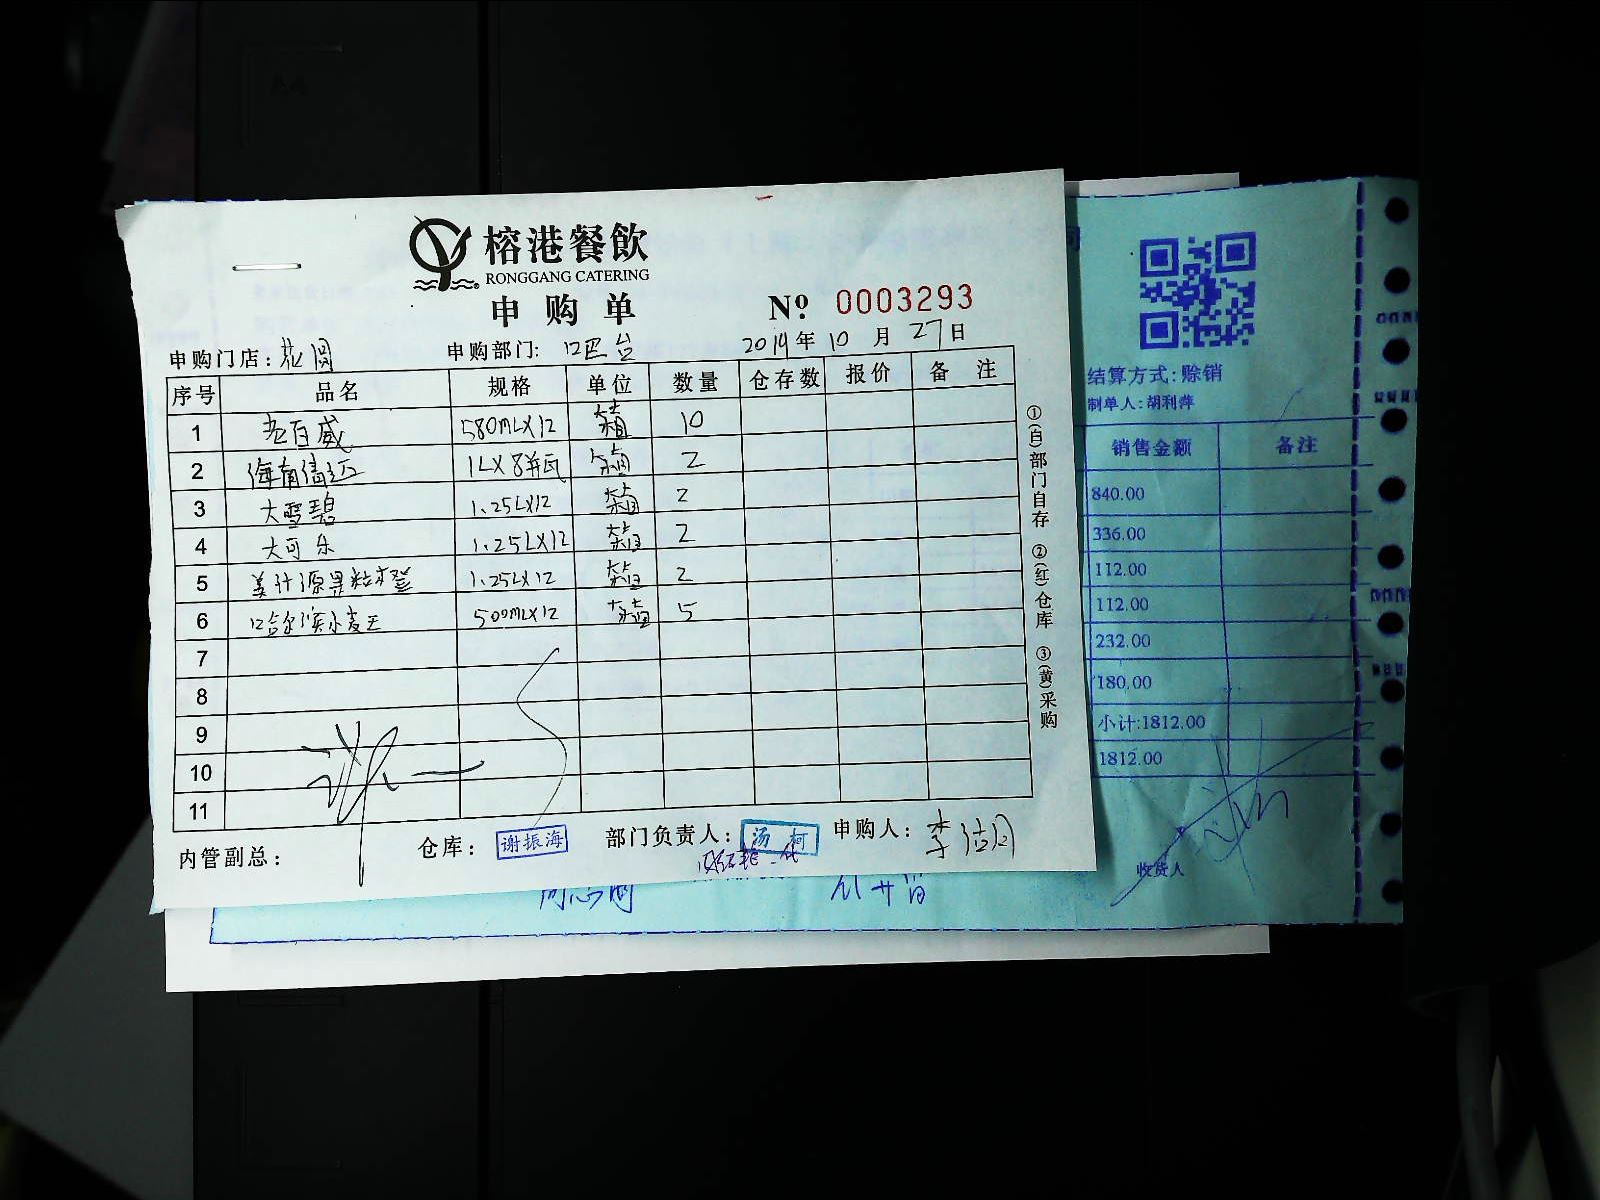 榕港餐飲
RONGGANG CATERING
申购单
№ 0003293
申购门店: 花园 申购部门: 吧台 2019年10月27日
序号 品名 规格 单位 数量 仓存数 报价 备注
1 老百威 580ML×12 箱 10
2 海南清 1L×8瓶 箱 2
3 大雪碧 1.25L×12 箱 2
4 大可乐 1.25L×12 箱 2
5 美汁源果粒橙 1.25L×12 箱 2
6 哈尔滨小麦王 500ML×12 箱 5
7
8
9
10
11
内管副总: 仓库: 谢振海 部门负责人: 汤柯 申购人: 李
①(白)部门自存 ②(红)仓库 ③(黄)采购
结算方式:赊销
制单人:胡利萍
销售金额 备注
840.00
336.00
112.00
112.00
232.00
180.00
小计:1812.00
1812.00
收货人